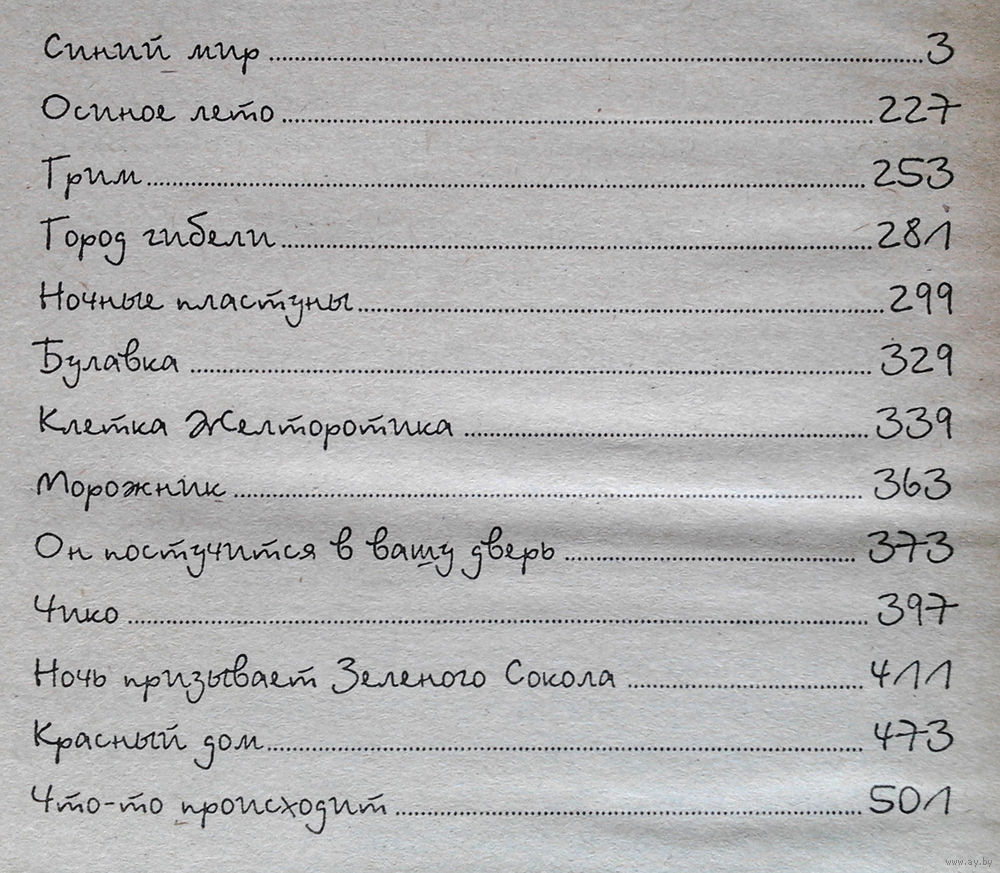 Синий мир 3
Осиное лето 227
Грим 253
Город гибели 281
Ночные пластуны 299
Булавка 329
Клетка Желторотика 339
Морожник 363
Он постучится в вашу дверь 373
Чико 397
Ночь призывает Зеленого Сокола 411
Красный дом 473
Что-то происходит 501
www.ay.by